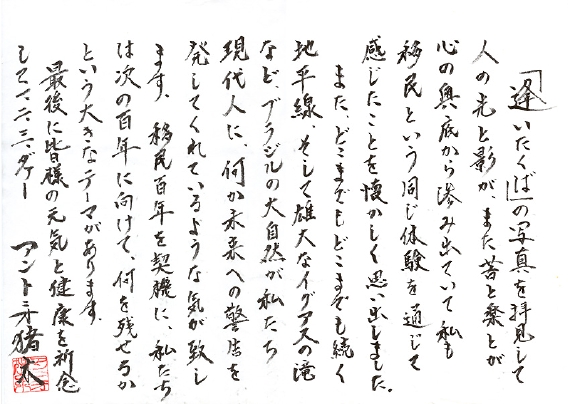 「逢いたくば」の写真を拝見して
人の光と影が、また苦と楽とが
心の奥底から滲み出ていて私も
移民という同じ体験を通じて
感じたことを懐かしく思い出しました。
また、どこまでもどこまでも続く
地平線、そして雄大なイグアスの滝
など、ブラジルの大自然が私たち
現代人に、何か未来への警告を
発してくれているような気が致し
ます。移民百年を契機に、私たち
は次の百年に向けて、何を残せるか
という大きなテーマがあります。
最後に皆様の元気と健康を祈念
して、1、2、3、ダァー
アントニオ猪木